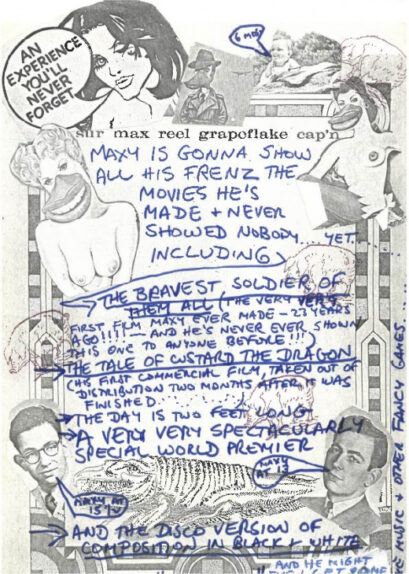 AN
EXPERIENCE
YOU'LL
NEVER
FORGET
6 MOS
sur max reel grapoflake cap'n
MAXY IS GONNA SHOW
ALL HIS FRENZ THE
MOVIES HE'S
MADE + NEVER
SHOWED NOBODY.... YET....
INCLUDING
→ THE BRAVEST SOLDIER OF
THEM ALL (THE VERY VERY
FIRST FILM MAXY EVER MADE - 23 YEARS
AGO!!!! - AND HE'S NEVER EVER SHOWN
THIS ONE TO ANYONE BEFORE!!!)
→ THE TALE OF CUSTARD THE DRAGON
(HIS FIRST COMMERCIAL FILM, TAKEN OUT OF
DISTRIBUTION TWO MONTHS AFTER IT WAS
FINISHED.....
→ THE DAY IS TWO FEET LONG
→ A VERY VERY SPECTACULARLY
SPECIAL WORLD PREMIER
MAXY AT
15 ½
AT 13
→ AND THE DISCO VERSION OF
COMPOSITION IN BLACK & WHITE
AND HE MIGHT
MUSIC + OTHER FANCY GAMES...